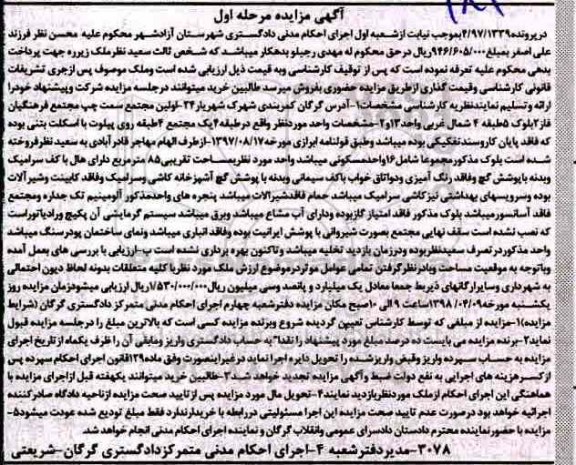 آگهی مزایده مرحله اول
در پرونده ۴/۹۷/۱۳۳۹ بموجب نیابت از شعبه اول اجرای احکام مدنی دادگستری شهرستان آزادشهر محکوم علیه محسن نظر فرزند
علی اصغر بمبلغ ۹۴۶/۶۰۵/۰۰۰ ریال در حق محکوم له مهدی رجبلو بدهکار میباشد که شخص ثالث سعید نظر ملک زیر به جهت پرداخت
بدهی محکوم علیه تعرفه نموده است که پس از توقیف کارشناسی و به قیمت ذیل ارزیابی شده است و ملک موصوف پس از جری تشریفات
قانونی کارشناسی و قیمت گذاری از طریق مزایده حضوری بفروش میرسد طالبین خرید میتوانند در جلسه مزایده شرکت و پیشنهاد خود را
ارائه و تسلیم نمایند نظریه کارشناسی مشخصات ۱-آدرس گرگان کمربندی شهرک شهریار ۲۴-اولین مجتمع سمت چپ مجتمع فرهنگیان
فاز ۲ بلوک ۵ طبقه ۴ شمال غربی واحد ۱۳ و ۲-مشخصات واحد مورد نظر واقع در طبقه ۴ یک مجتمع ۴ طبقه روی پیلوت با اسکلت بتنی بوده
که فاقد پایان کار و سند تفکیکی بوده میباشد و طبق قولنامه ابرازی مورخه ۱۳۹۷/۰۸/۱۷-از طرف الهام مهاجر قادرآبادی به سعید نظر فروخته
شده است بلوک مذکور مجموعا شامل ۱۶ واحد مسکونی میباشد واحد مورد نظر بمساحت تقریبی ۸۵ متر مربع دارای هال با کف سرامیک
و بدنه با پوشش گچ و فاقد رنگ آمیزی و دو اتاق خواب با کف سیمانی و بدنه با پوشش گچ آشپزخانه کاشی و سرامیک و فاقد کابینت و شیرآلات
بوده و سرویسهای بهداشتی نیز کاشی سرامیک میباشد حمام فاقد شیرآلات میباشد پنجره های واحد مذکور آلومینیم تک جداره و مجتمع
فاقد آسانسور میباشد بلوک مذکور فاقد امتیاز گاز بوده و دارای آب مشاع میباشد و برق میباشد سیستم گرمایشی آن پکیج و رادیاتور است
که نصب نشده است سقف نهایی مجتمع بصورت شیروانی با پوشش ایرانیت بوده و فاقد انباری میباشد و نمای ساختمان پودر سنگ میباشد
واحد مذکور در تصرف سعید نظر بوده و در زمان بازدید تخلیه میباشد و تاکنون بهره برداری نشده است ب-ارزیابی با بررسی های بعمل آمده
و با توجه به موقعیت مساحت و با در نظر گرفتن تمامی عوامل موثر در موضوع ارزش ملک مورد نظر با کلیه متعلقات بدونه لحاظ دیون احتمالی
به شهرداری و سایر ارگانهای ذیربط جمعا معادل یک میلیارد و پانصد و سی میلیون ریال ۱/۵۳۰/۰۰۰/۰۰۰ ریال ارزیابی میشود زمان مزایده روز
یکشنبه مورخه ۱۳۹۸/۰۴/۰۹ ساعت ۹ الی ۱۰ صبح مکان مزایده دفتر شعبه چهارم اجرای احکام مدنی متمرکز دادگستری گرگان (شرایط
مزایده) ۱-مزایده از مبلغی که توسط کارشناس تعیین گردیده شروع و برنده مزایده کسی است که بالاترین مبلغ را در جلسه مزایده قبول
نماید ۲-برنده مزایده می بایست ده درصد مبلغ مورد پیشنهاد را نقدا" به حساب دادگستری واریز و مابقی آن را ظرف یکماه از تاریخ اجرای
مزایده به حساب سپرده واریز و قبض واریز شده را تحویل دایره اجرا نماید در غیر اینصورت وفق ماده ۱۲۹ قانون اجرای احکام سپرده پس
از کسر هزینه های اجرایی به نفع دولت ضبط و آگهی مزایده تجدید خواهد شد ۳-طالبین خرید میتوانند یکهفته قبل از اجرای مزایده با
هماهنگی این اجرای احکام از ملک مورد نظر بازدید نمایند ۴-تحویل مال مورد مزایده پس از تایید صحت مزایده از ناحیه دادگاه صادر کننده
اجرائیه خواهد بود در صورت عدم تایید صحت مزایده این اجرا مسئولیتی در رابطه با خریدار ندارد فقط مبلغ تودیع شده عودت میشود ۵-
مزایده با حضور نماینده محترم دادستان دادسرای عمومی و انقلاب گرگان و نماینده اجرای احکام مدنی انجام خواهد شد.
۳۰۷۸-مدیر دفتر شعبه ۴-اجرای احکام مدنی متمرکز دادگستری گرگان-شریعتی